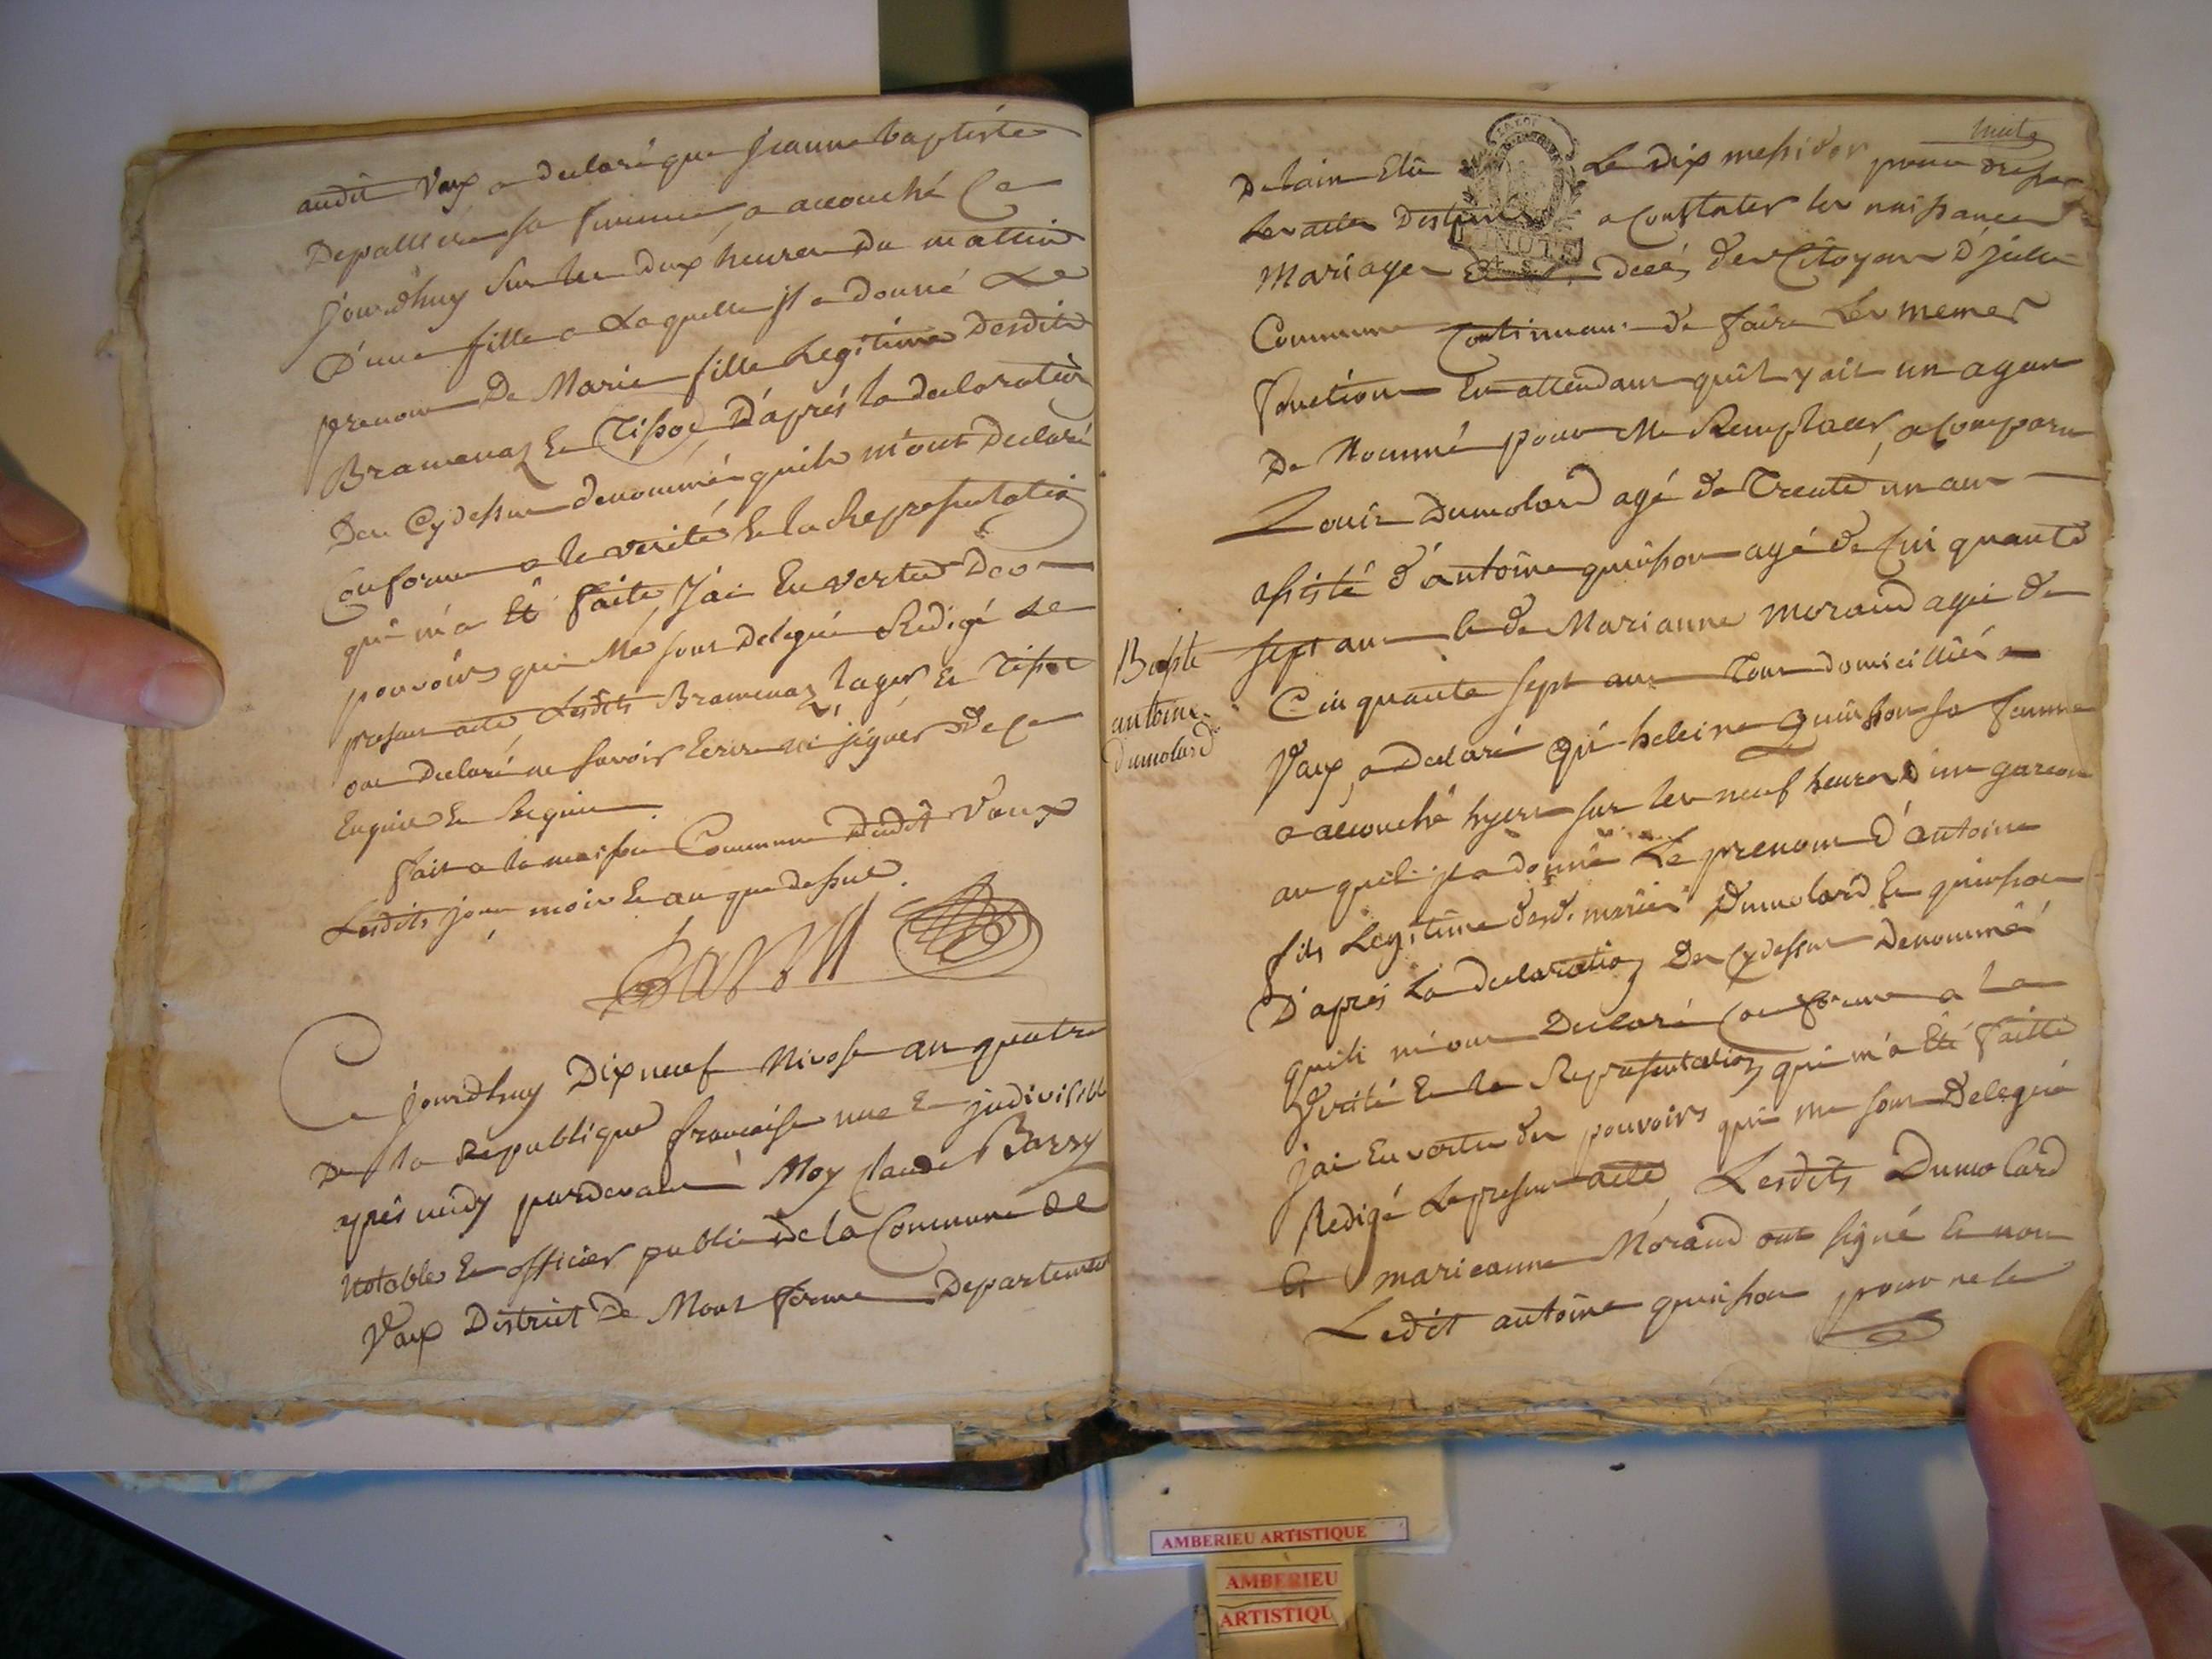 audit Vaux a declaré que jeanne baptiste
Depalliere sa femme a accouché Ce
jourdhuy sur les deux heures du mattin
D'une fille a Laquelle jl a donné Le
prenom De Marie fille Legitime Desdits
Bramenaz Et Tissot D'après la declaration
Des Cydessus denommés quils m'ont Declaré
Conforme a la verité Et la Representation
qui m'a Eté faite, J'ai En vertu Des
pouvoirs qui Me sont Delegués Redigé Le
present acte, Lesdits Bramenaz, lager Et Tissot
ont Declaré ne savoir Ecrire ni signer De ce
Enquis Et Requis.
fait a la maison Commune Dudit Vaux
Lesdits jour, mois Et an que dessus.
Barry
Ce jourdhuy Dixneuf Nivose an quatre
De la Republique francaise une Et jndivisible
après midy pardevant Moy Claude Barry
Notable Et officier public de la Commune de
Vaux District De Mont ferme Departement
huit
Delain Elu Le dix messidor pour dresser
Les actes Destinés a Constater les naissances
LA LOI
MINUTE
4 S.
Mariages Et Decés des Citoyens D'jcelle
Commune Continuant de faire Les memes
fonctions En attendant qu'il y ait un agent
De Nommé pour Me Remplacer, a Comparu
Louis Dumolard agé de Trente un ans
assisté d'antoine quinson agé de Cinquante
sept ans Et de Marianne Morand agée de
Cinquante sept ans Tous domicilliés a
Vaux, a declaré qu'heleine Quinson sa femme
a accouché hyere sur les neuf heures d'un garcon
au quel jl a donné Le prenom D'antoine
fils Legitime desd. mariés Dumolard Et quinson
D'après La declaration Des Cydessus Denommé
quils m'ont Declaré Conforme a La
Verité Et la Representation qui m'a Eté faitte
jai En vertu des pouvoirs qui me sont Delegué
Redigé Le present acte, Lesdits Dumolard
Et marieanne Morand ont signé Et non
Ledit antoine quinson pour ne le
Bapte
antoine
Dumolard
AMBERIEU ARTISTIQUE
AMBERIEU
ARTISTIQU